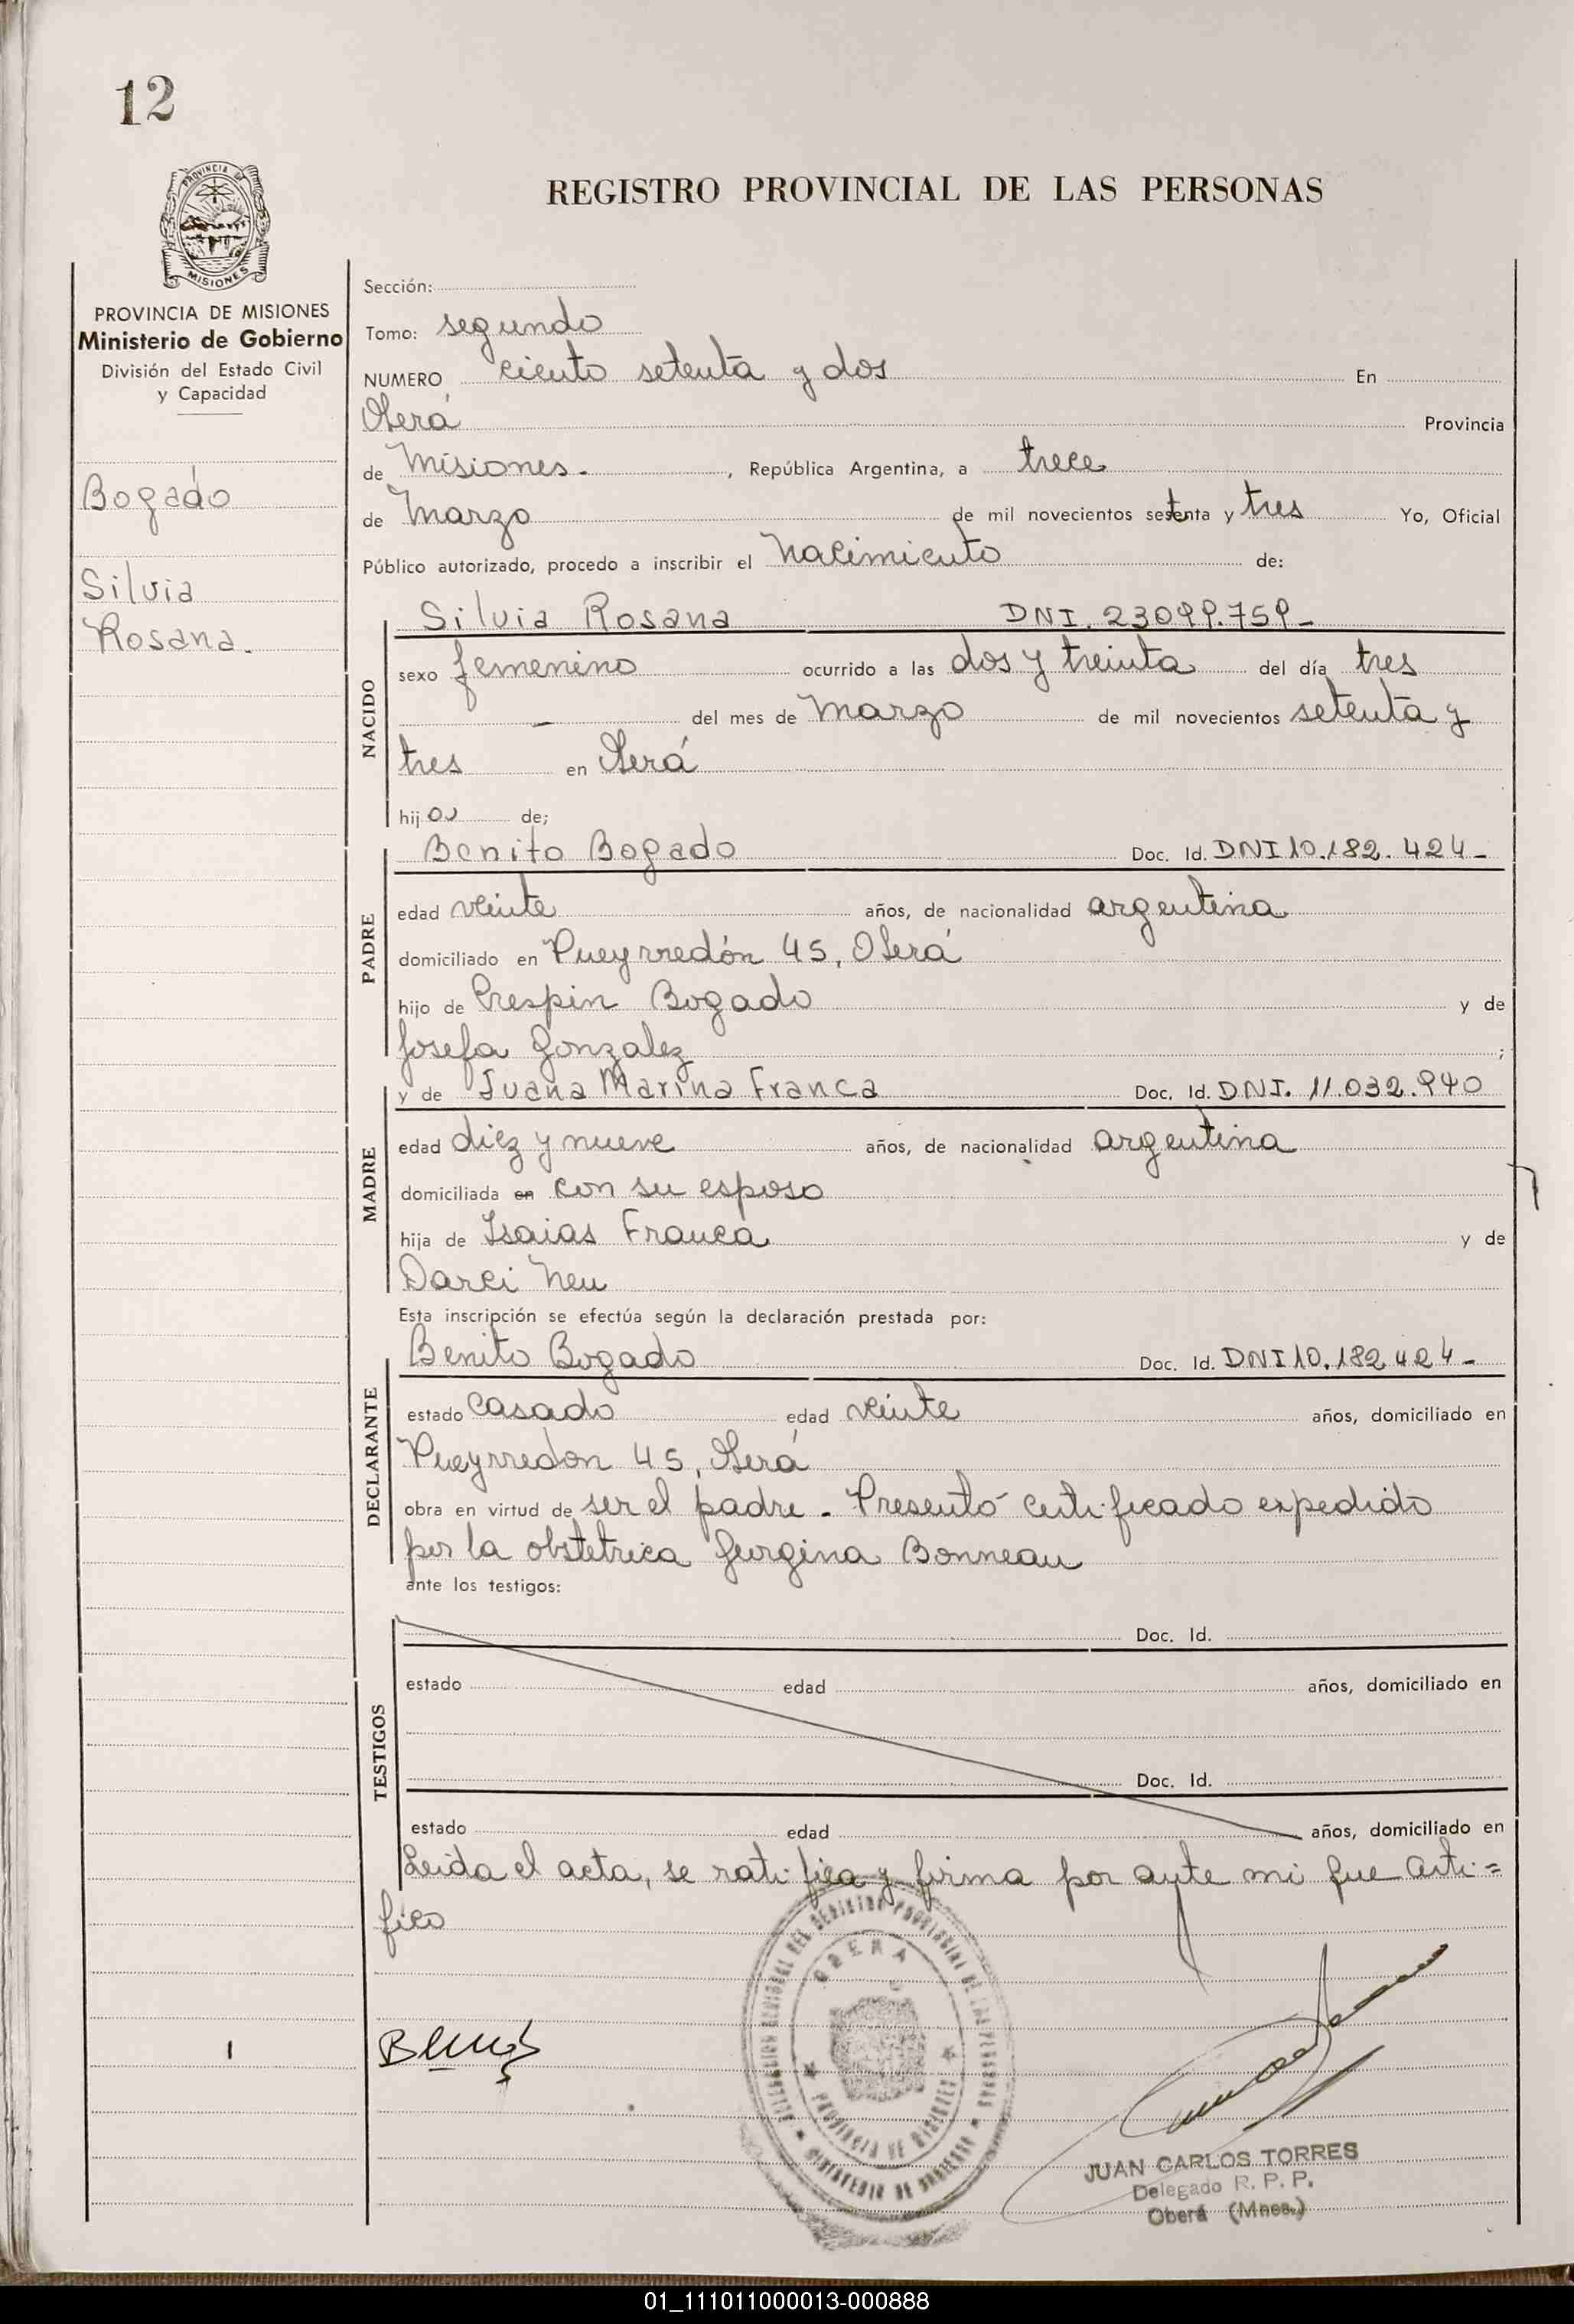 12
PROVINCIA DE MISIONES
REGISTRO PROVINCIAL DE LAS PERSONAS
PROVINCIA DE MISIONES
Ministerio de Gobierno
División del Estado Civil
y Capacidad
Bogado
Silvia
Rosana.
Sección:
Tomo: segundo
NUMERO ciento setenta y dos En
Oberá Provincia
de Misiones. , República Argentina, a trece
de Marzo de mil novecientos setenta y tres Yo, Oficial
Público autorizado, procedo a inscribir el Nacimiento de:
NACIDO
Silvia Rosana DNI. 23099.759-
sexo femenino ocurrido a las dos y treinta del día tres
- del mes de Marzo de mil novecientos setenta y
tres en Oberá
hija de;
PADRE
Benito Bogado Doc. Id. DNI 10.182.424-
edad veinte años, de nacionalidad argentina
domiciliado en Pueyrredón 45, Oberá
hijo de Crespin Bogado y de
Josefa Gonzalez ;
MADRE
y de Juana Marina Franca Doc. Id. DNI. 11.032.940
edad diez y nueve años, de nacionalidad argentina
domiciliada en con su esposo
hija de Isaias Franca y de
Darci Neu
Esta inscripción se efectúa según la declaración prestada por:
DECLARANTE
Benito Bogado Doc. Id. DNI 10.182.424-
estado casado edad veinte años, domiciliado en
Pueyrredon 45, Oberá
obra en virtud de ser el padre. Presentó certificado expedido
por la obstetrica Georgina Bonneau
ante los testigos:
TESTIGOS
Doc. Id.
estado edad años, domiciliado en
Doc. Id.
estado edad años, domiciliado en
Leida el acta, se ratifica y firma por ante mi que certi=
fico
OBERA
PROVINCIA DE MISIONES
JUAN CARLOS TORRES
Delegado R. P. P.
Oberá (Mnes.)
01_111011000013-000888